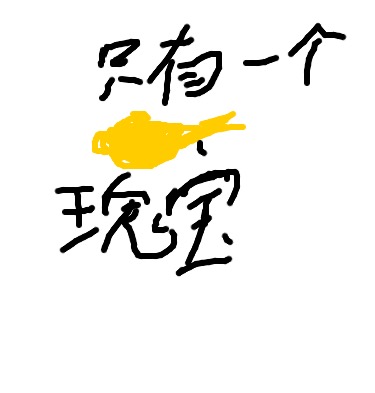 只有一个
瑰宝